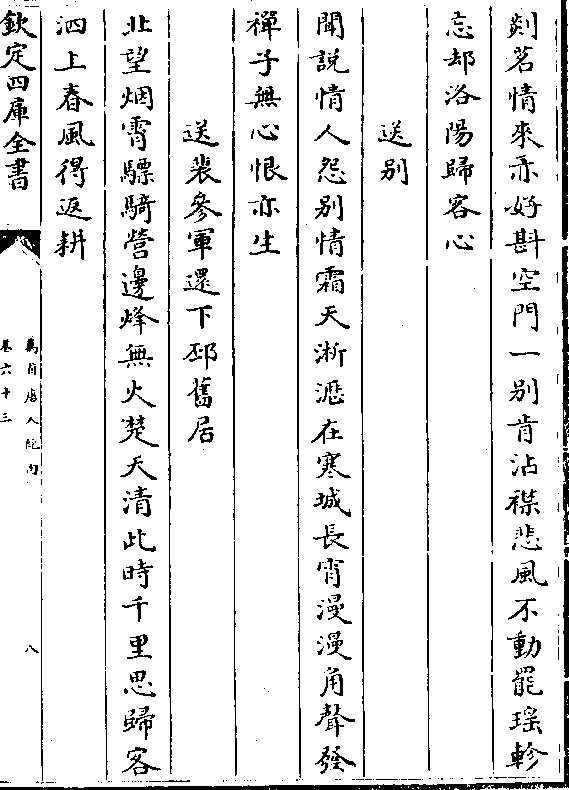 剡茗情來亦好斟空門一别肯沾襟悲風不動罷瑤軫
忘却洛陽歸客心
送别
聞説情人怨别情霜天淅瀝在寒城長宵漫漫角聲發
禪子無心恨亦生
送裴參軍還下邳舊居
北望烟霄驃騎營邊烽無火楚天清此時千里思歸客
泗上春風得返耕
欽定四庫全書
萬首唐人絶句
卷六十三
八